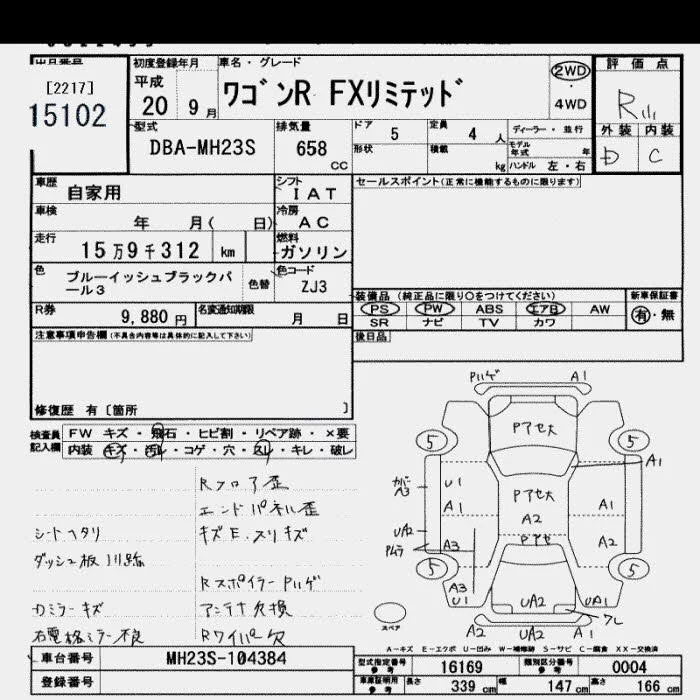 出品番号
[2217]
15102
初度登録年月
平成
20 9月
車名・グレード
ワゴンR FXリミテッド
2WD
・
4WD
評価点
R
外装 内装
D C
型式
DBA-MH23S
排気量
658
CC
ドア 5
定員 4 人
ディーラー・並行
形状
積載 kg
モデル年式 年
ハンドル 左・右
車歴
自家用
シフト
IAT
セールスポイント(正常に機能するものに限ります)
車検
年 月( 日)
冷房
AC
走行
15万9千312 km
燃料
ガソリン
色
ブルーイッシュブラックパール3
色替
色コード
ZJ3
装備品 (純正品に限り○をつけてください)
新車保証書
PS PW ABS エアB AW
有・無
SR ナビ TV カワ
R券
9,880円
名変通知期限
月 日
後日品
注意事項申告欄(不具合内容等は具体的に記入して下さい)
修復歴 有〔箇所 〕
検査員記入欄
FW キズ・飛石・ヒビ割・リペア跡・×要
内装 キズ・汚レ・コゲ・穴・スレ・キレ・破レ
Rフロア歪
エンドパネル歪
シートヘタリ
キズE.スリキズ
ダッシュ板
RスポイラーPハゲ
ミラーキズ
アンテナ欠損
右電格ミラー不良
Rワイパー欠
Pハゲ
A1
Pアセ大
5
5
A1
カバーA3
U1
A1
Pアセ大
A2
A1
UA2
Pムラ
A3
Pアセ
A2
5
5
A3
U1
UA2
UA1
ワレ
A2
UA2
A1
スペア
A-キズ E-エクボ U-凹み W-補修跡 S-サビ C-腐食 XX-交換済
車台番号
MH23S-104384
型式指定番号 参考
16169
類別区分番号 参考
0004
登録番号
車庫証明用 参考
長さ 339 cm
幅 147 cm
高さ 166 cm